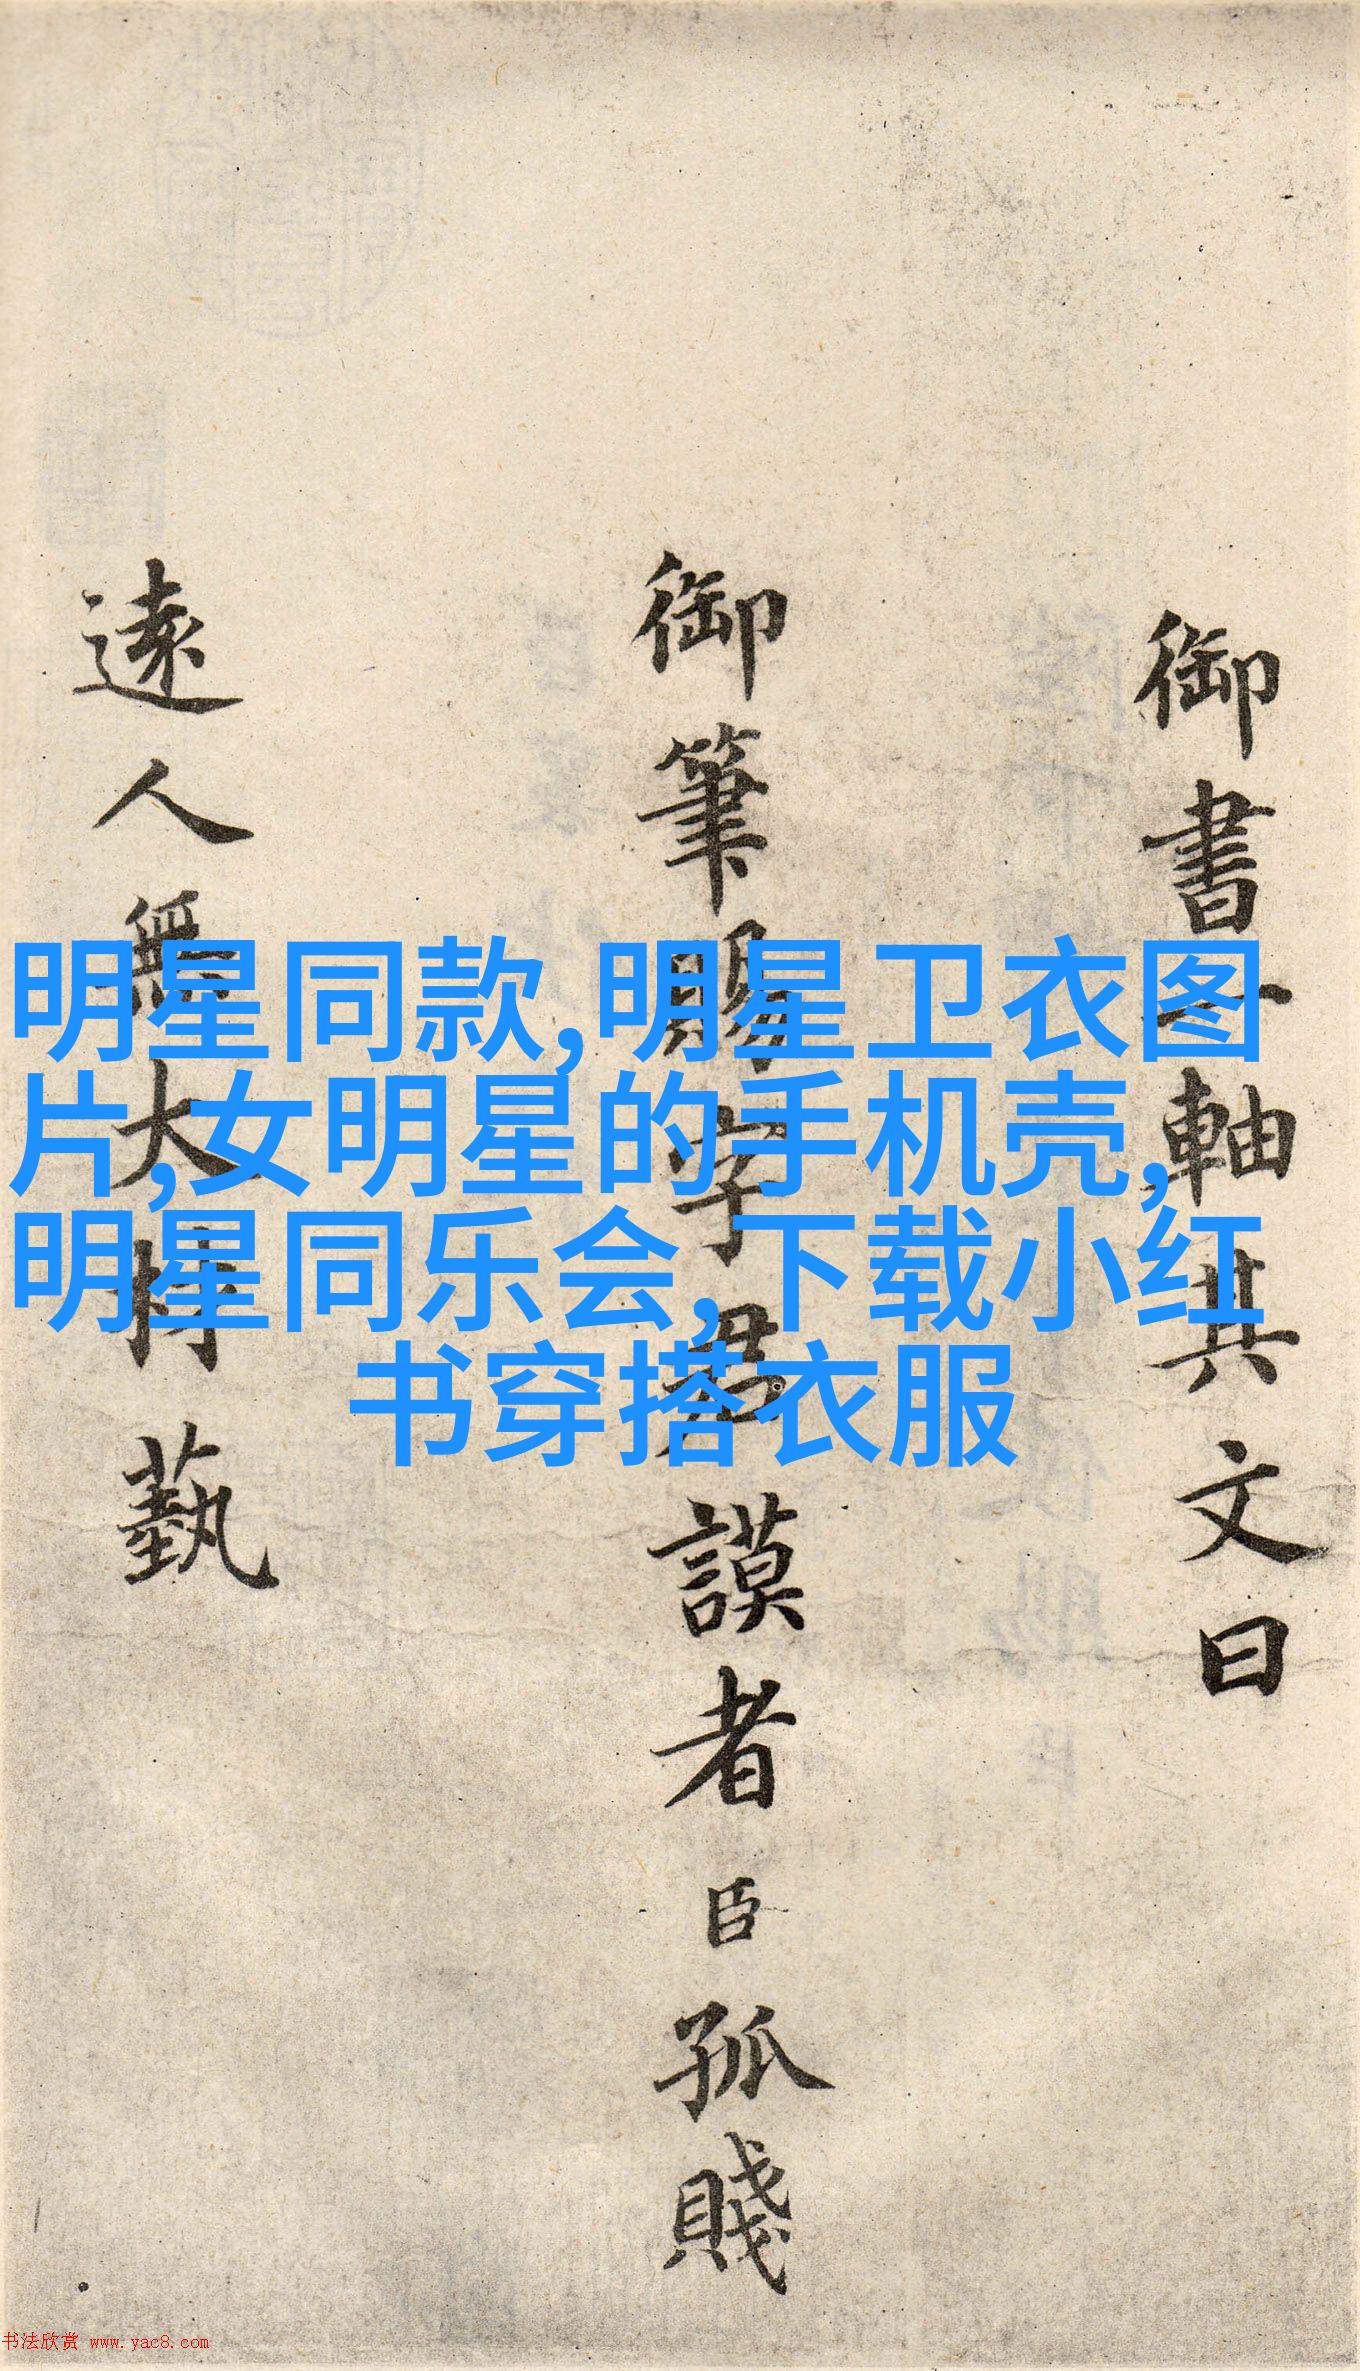 御書一軸其文曰
御筆賜字君謨者臣孤賤
遠人無大材藝
明星同款,明星卫衣图
片,女明星的手机壳,
明星同乐会,下载小红
书穿搭衣服
书法欣赏 www.yac8.com